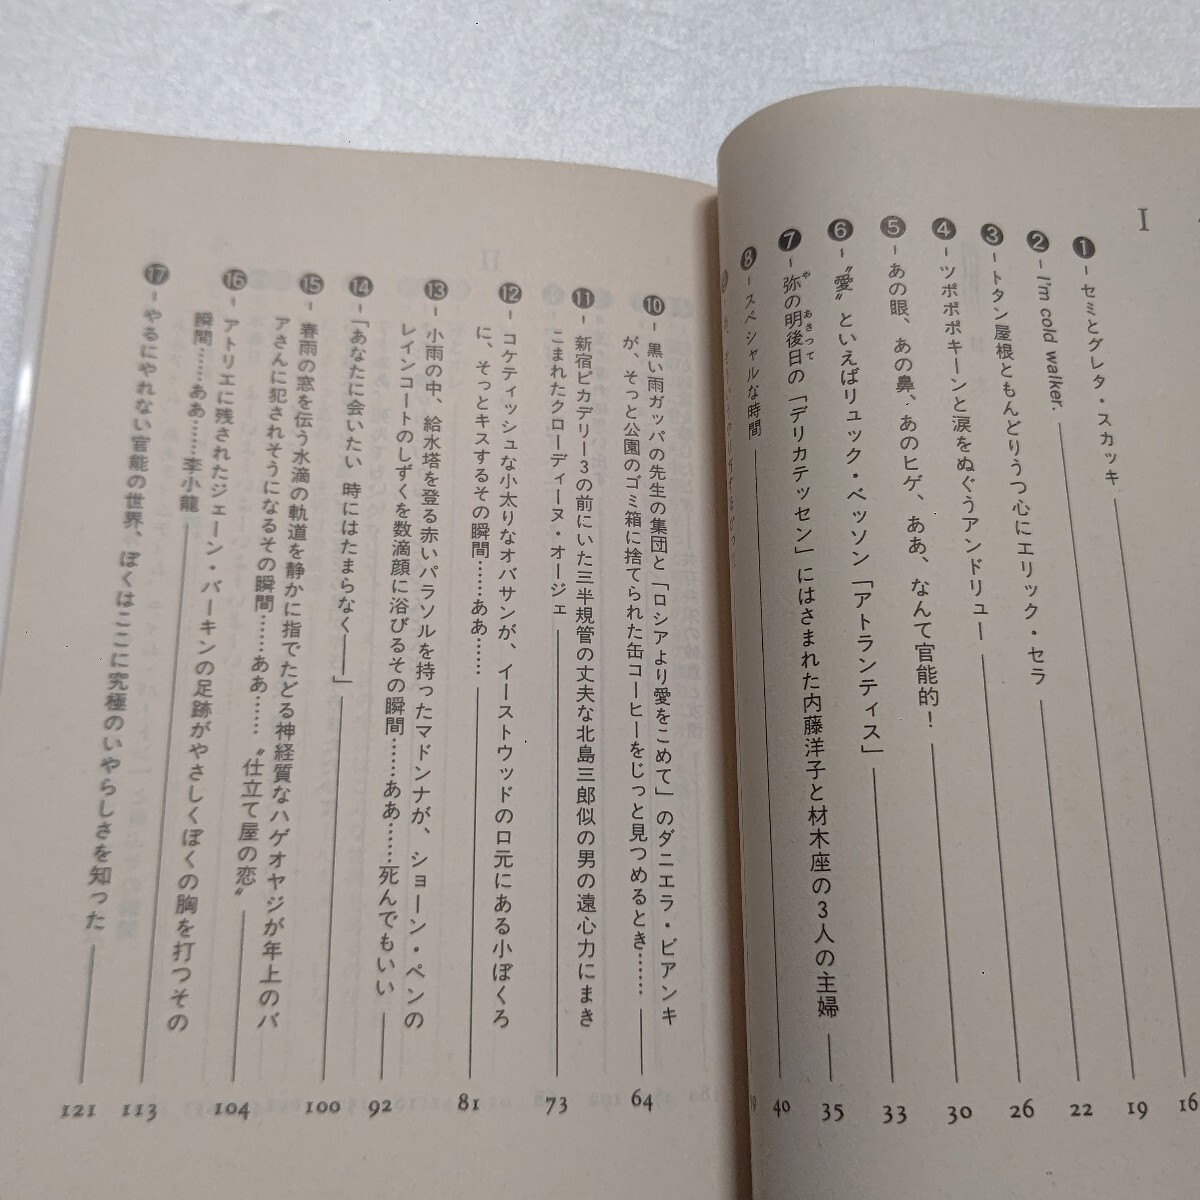 I
❶-セミとグレタ・スカッキ 16
❷-I'm cold walker. 19
❸-トタン屋根ともんどりうつ心にエリック・セラ 22
❹-ツポポポキーンと涙をぬぐうアンドリュー 26
❺-あの眼、あの鼻、あのヒゲ、ああ、なんて官能的! 30
❻-〝愛〟といえばリュック・ベッソン「アトランティス」 33
❼-弥の明後日の「デリカテッセン」にはさまれた内藤洋子と材木座の3人の主婦 35
や あさって
❽-スペシャルな時間 40
II
❿-黒い雨ガッパの先生の集団と「ロシアより愛をこめて」のダニエラ・ビアンキ
が、そっと公園のゴミ箱に捨てられた缶コーヒーをじっと見つめるとき…… 64
⓫-新宿ピカデリー3の前にいた三半規管の丈夫な北島三郎似の男の遠心力にまき
こまれたクローディーヌ・オージェ 73
⓬-コケティッシュな小太りなオバサンが、イーストウッドの口元にある小ぼくろ
に、そっとキスするその瞬間……ああ…… 81
⓭-小雨の中、給水塔を登る赤いパラソルを持ったマドンナが、ショーン・ペンの
レインコートのしずくを数滴顔に浴びるその瞬間……ああ……死んでもいい 92
⓮-「あなたに会いたい 時にはたまらなく——」 100
⓯-春雨の窓を伝う水滴の軌道を静かに指でたどる神経質なハゲオヤジが年上のバ
アさんに犯されそうになるその瞬間……ああ……〝仕立て屋の恋〟 104
⓰-アトリエに残されたジェーン・バーキンの足跡がやさしくぼくの胸を打つその
瞬間……ああ……李小龍 113
⓱-やるにやれない官能の世界、ぼくはここに究極のいやらしさを知った 121